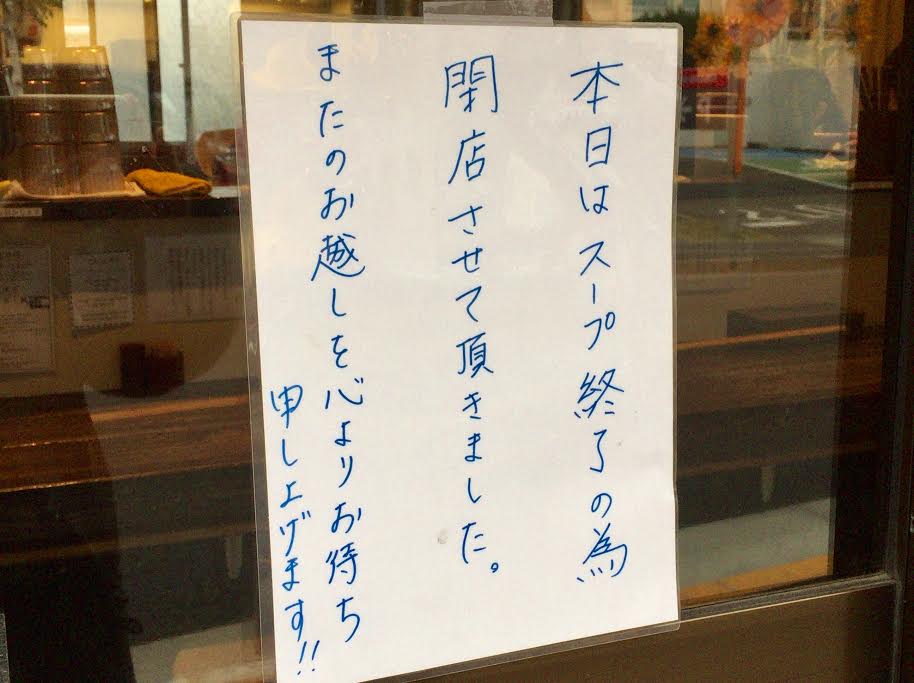 本日はスープ終了の為
閉店させて頂きました。
またのお越しを心よりお待ち
申し上げます!!